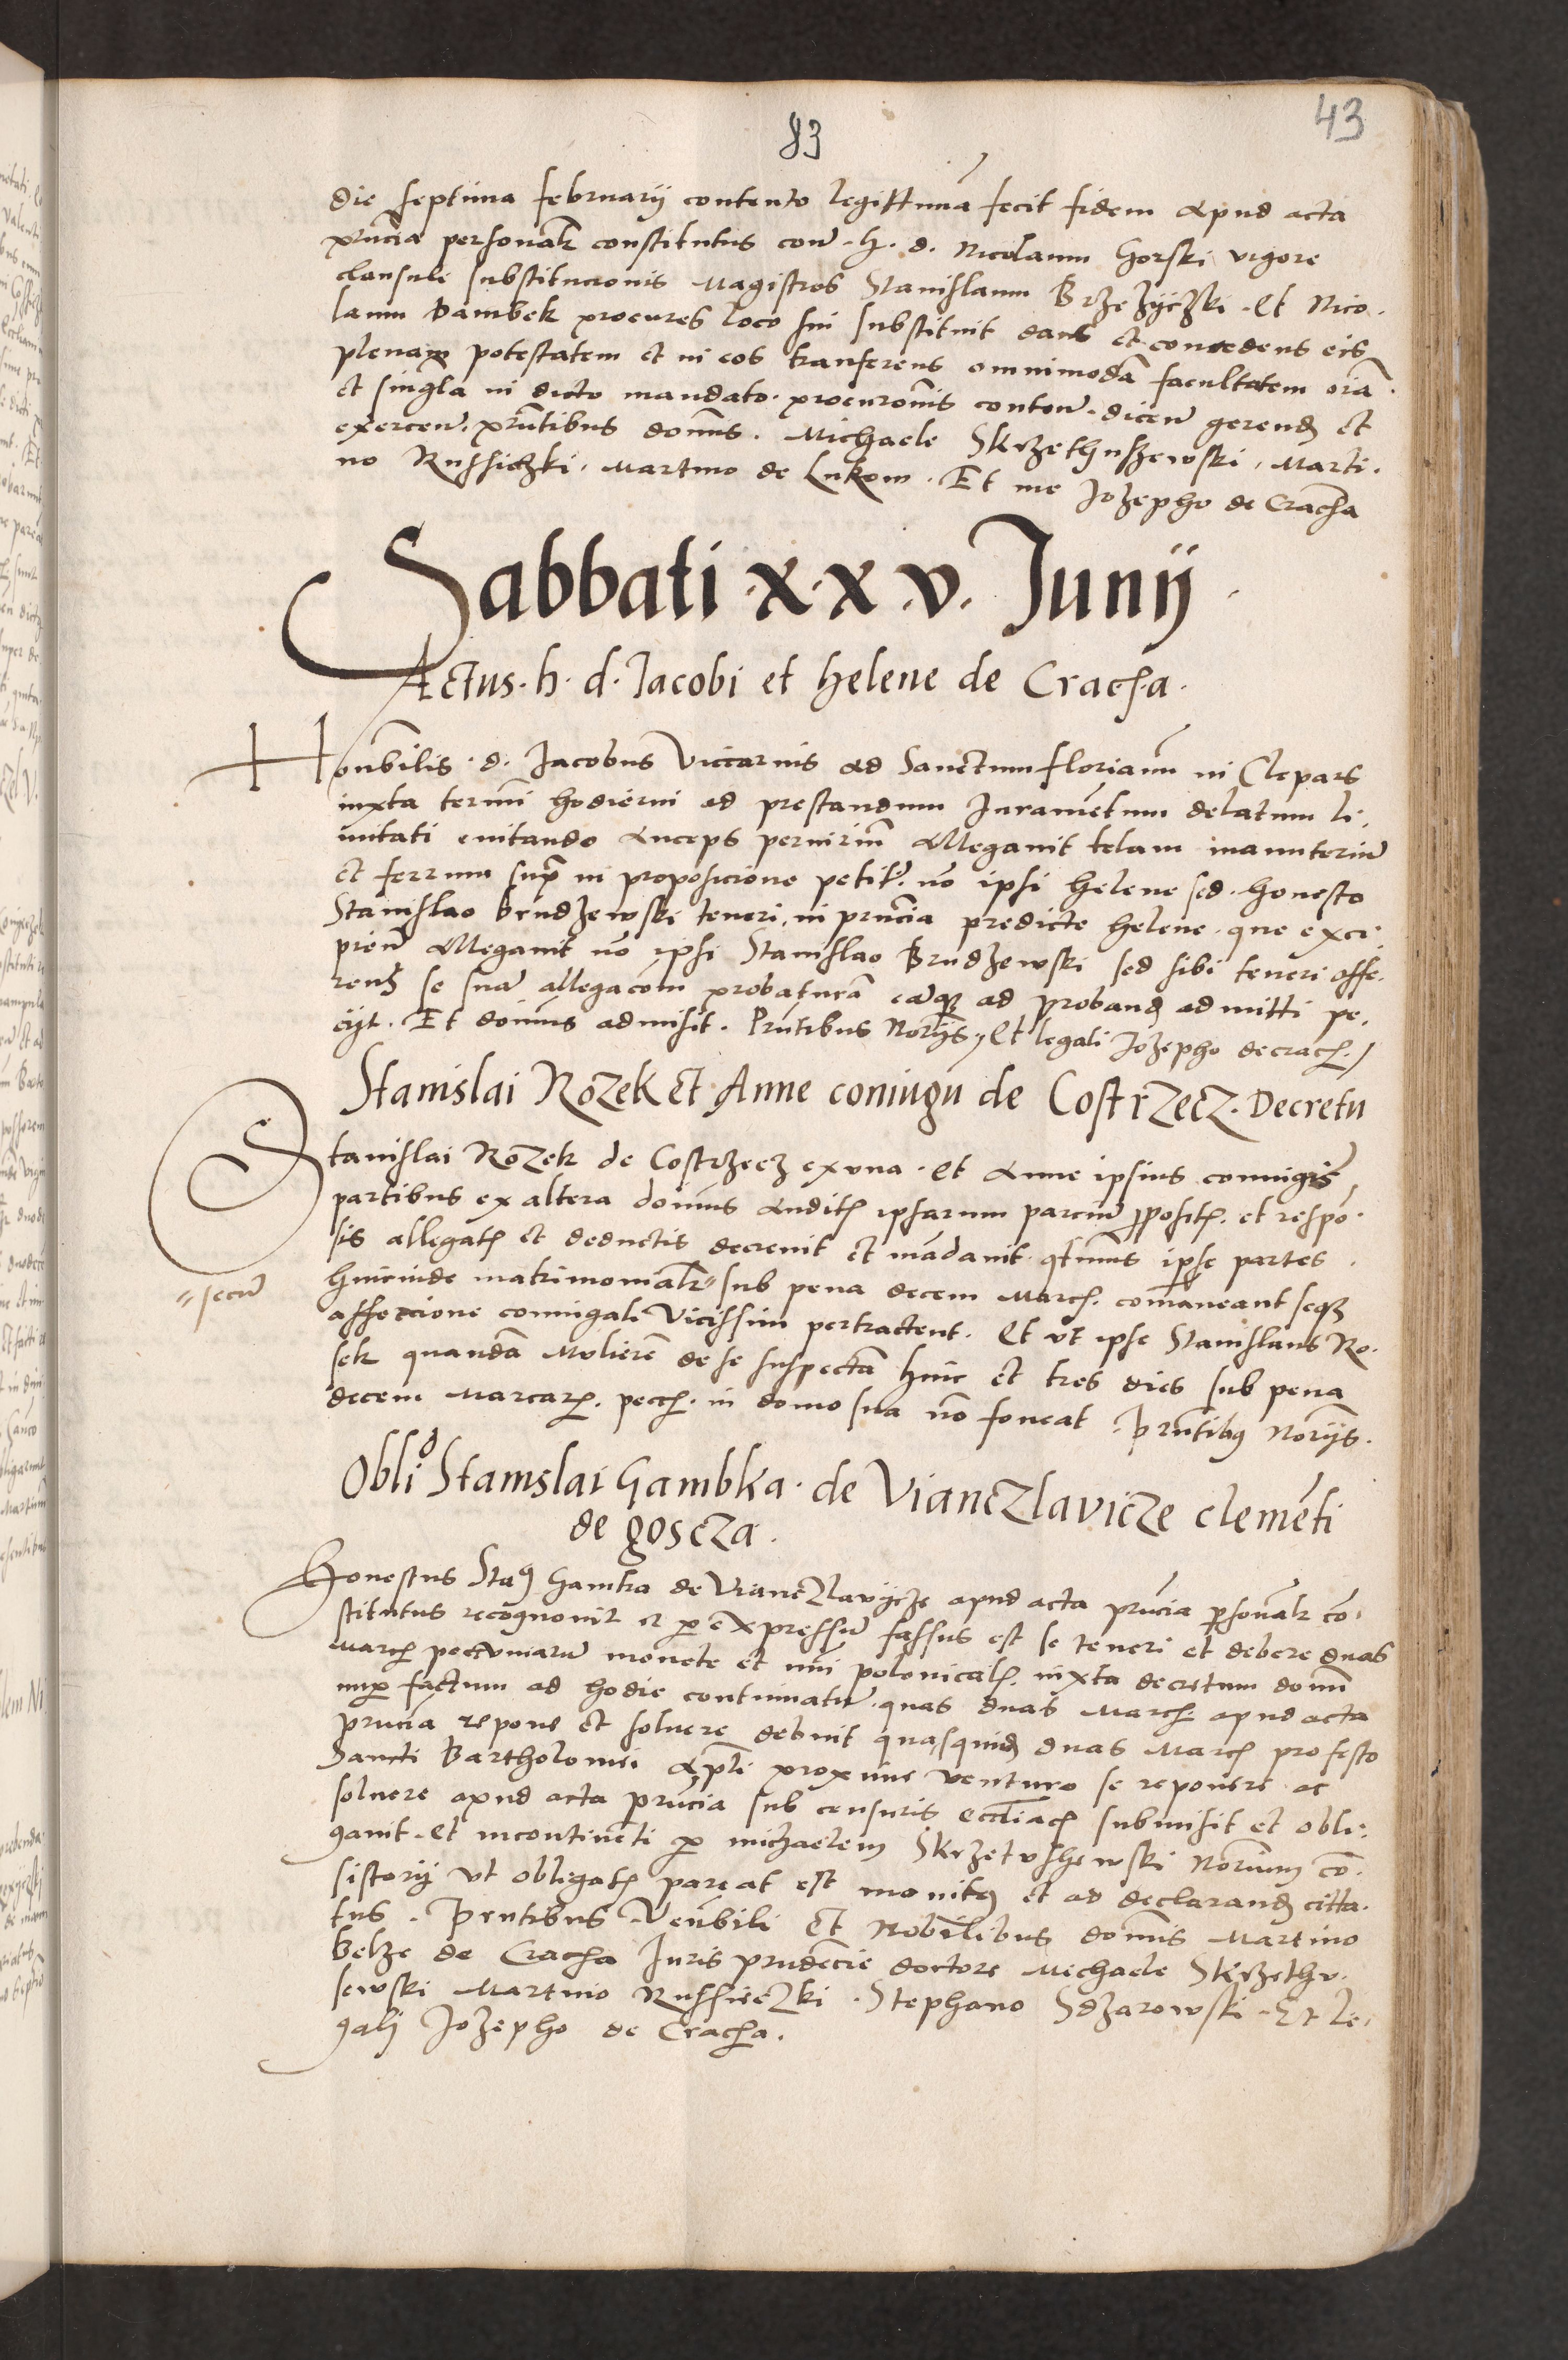 83
43
die septima februarij contento legittimã fecit fidem apud acta
pñcia personalr constitutus contra h. d. Nicolaum Gorski vigore
clausule substitucionis Magistros Stanislaum Brzezyczki. Et Nico-
laum Bambek procures loco sui substituit dans et concedens eis
plenam potestatem et in eos tranferens omnimodã facultatem oiã
et singla in dicto mandato procuronis conten. dicen gerend et
exercen. pñtibus domis. Michaele Skrzethuszewski, Marti-
no Russiczki, Martino de Lukow. Et me Jozepho de Crac͡ha
Sabbati .x.x.v. Junij
Actus. h. d. Jacobi et helene de Crac͡ha.
Honbilis. d. Jacobus Viccarius ad Sanctum florianũ in Clepars
iuxta termi hodierni ad prestandum Juramẽtum delatum li-
uitati euitando anceps periuriũ allegauit telam manuteriũ
et ferrum supra in proposicione petit. nõ ipsi helene sed. honesto
Stanislao Brudzewski teneri, in pñcia predicte helene. que exci-
pien allegauit nõ ipsi Stanislao Brudzewski sed sibi teneri offe-
rens se suã allegacõm probaturã eãq ad proband admitti pe-
cijt. Et domus admisit. Pñtibus Norijs, Et legali Jozepho de crach.
Stanislai Rozek Et Anne coniugũ de Costrzecz. Decretũ
Stanislai Rozek de Costrzecz ex vna. Et Anne ipsius coniugis
partibus ex altera domus audit ipsarum parciũ propositis et respõ-
sis allegatis et deductis decreuit et mãdauit. qtinus ipse partes
huicinde matrimonialr " sub pena decem March. comaneant seq
" secũ
affeccione coniugali vicissim pertractent. Et vt ipse Stanislaus Ro-
sek quandã Molierẽ de se suspectã hinc et tres dies sub pena
decem Marcar. pecc. in domo sua nõ foueat. Pñtibus Norijs.
Oblio Stanislai Gambka. de Vianczlavicze clemẽti
de goscza.
Honestus Stas Gamka de Vianczlavycze apud acta pñcia psonalr cõ-
stitutus recognouit et per expressũ fassus est se teneri et debere duas
March pecuniarũ monete et nũi polonicalis. iuxta decretum domi
nup factum ad hodie continuatũ. quas duas March. apud acta
pñcia repone et soluere debuit quasquid duas March pro festo
Sancti Bartholomei apli proxime venturo se reponere ac
soluere apud acta pñcia sub censuris eccliacis submisit et obli-
gauit. Et incontinẽti per michaelem Skrzetvshewski Norium cõ-
sistorij vt obligatis pareat est monitus et ad declarand citta-
tus. Pñtibus Veñbili Et Nobilibus domis Martino
Belze de Crac͡ha Juris prudẽcie doctore Michaele Skrzethu-
sewski Martino Russieczki. Stephano Sdzarowski. Et le-
galj Jozepho de Crac͡ha.